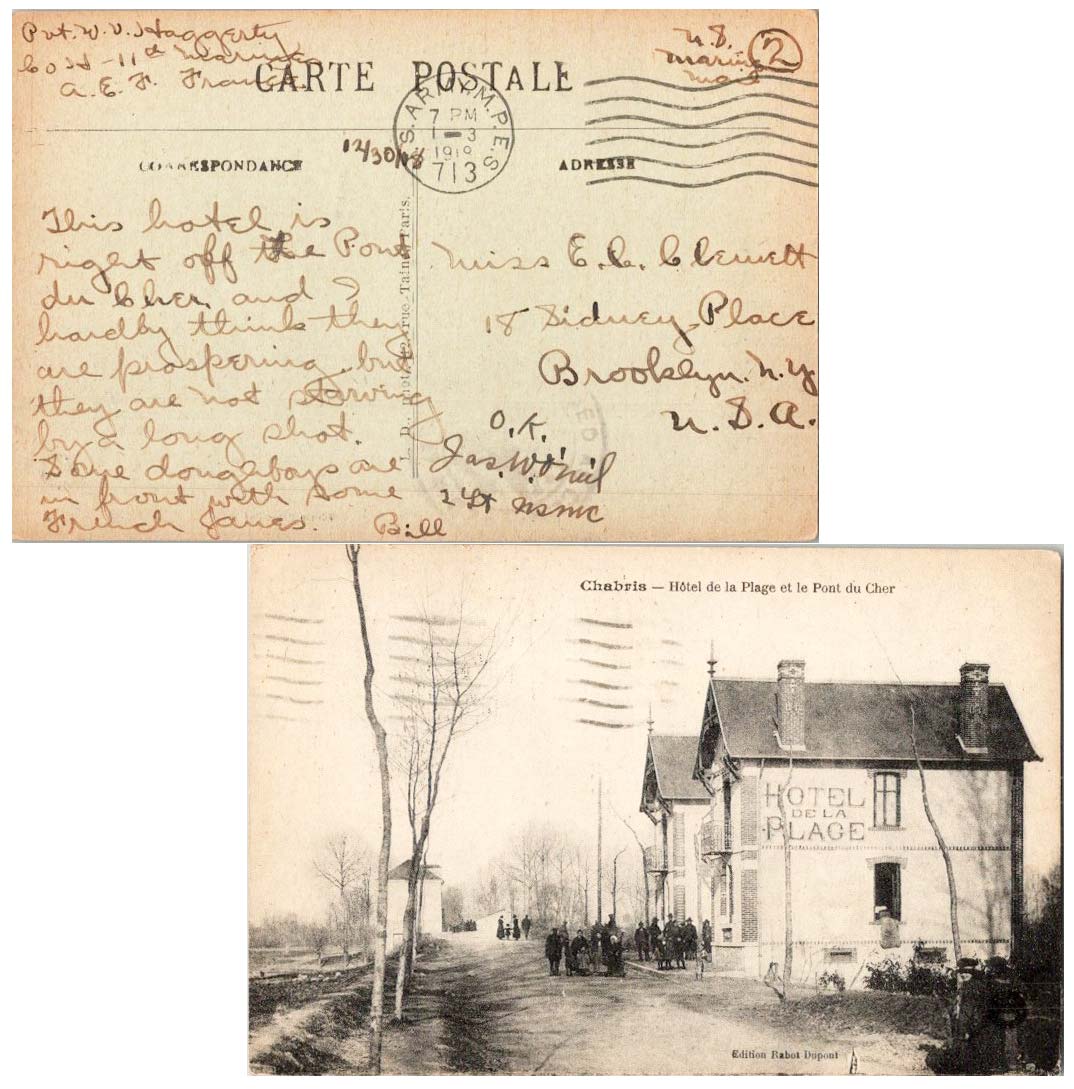 Pvt. W. V. Haggerty
Co H - 11th Marines
A. E. F. France
U.S.
Marine
Mail
2
CARTE POSTALE
U.S. ARMY M.P.E.S
7 PM
1 - 3
1919
713
12/30/18
CORRESPONDANCE
ADRESSE
This hotel is
right off the Pont
du Cher and I
hardly think they
are prospering but
they are not starving
by a long shot.
Some doughboys are
in front with some
French Janes. Bill
Paris.
Miss E. C. Clewett
18 Sidney Place
Brooklyn. N. Y
U. S. A.
O. K.
Jas. W. O'Neil
2 Lt USMC
Chabris — Hôtel de la Plage et le Pont du Cher
HOTEL
DE LA
PLAGE
Edition Rabot Dupont